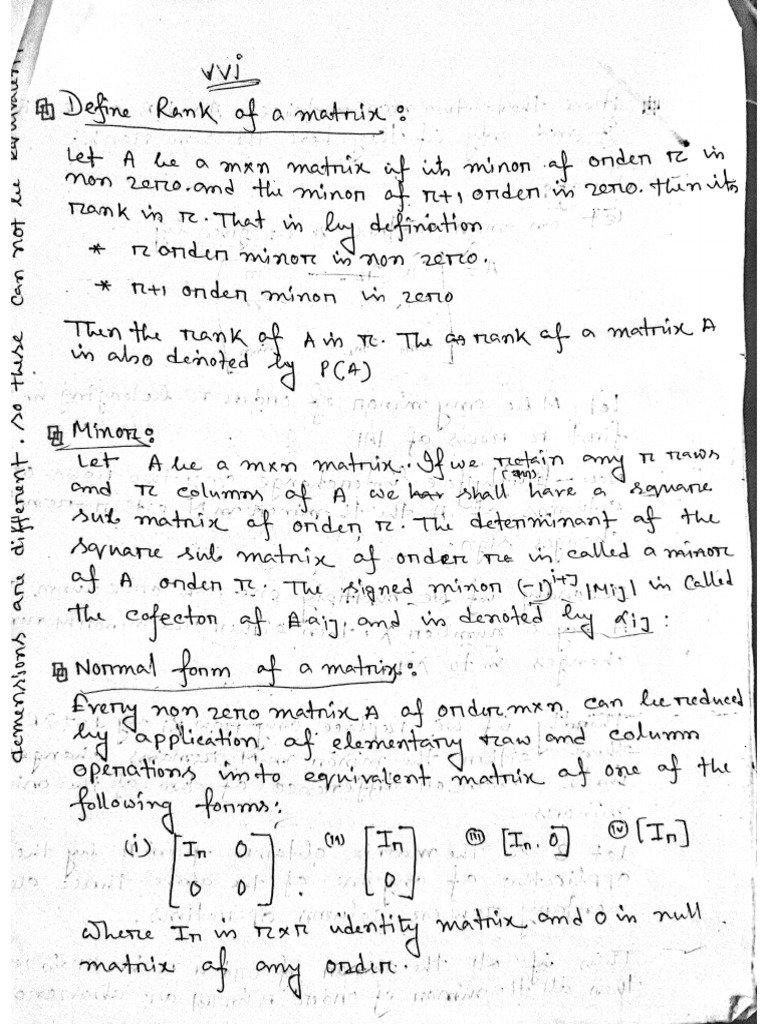 vvi
Define Rank of a matrix:
Let A be a mxn matrix if its minor of order r is
non zero. and the minor of r+1 order is zero. then its
rank is r. That is by defination
* r order minor is non zero.
* r+1 order minor is zero
Then the rank of A is r. The rank of a matrix A
is also denoted by P(A)
Minor:
Let A be a mxn matrix. If we retain any r raws
and r columns of A we shall have a square
sub matrix of order r. The determinant of the
square sub matrix of order r is called a minor
of A order r. The signed minor (-1)^{i+j} |Mij| is called
the cofector of aij, and is denoted by αij:
Normal form of a matrix:
Every non zero matrix A of order mxn can be reduced
by application of elementary raw and column
operations into equivalent matrix of one of the
following forms:
(i) [Ir 0 (ii) [Ir] (iii) [Ir. 0] (iv) [Ir]
0 0] [0]
where Ir is rxr identity matrix and 0 is null
matrix of any order.
demenssions are different. so these can not be equivalent.